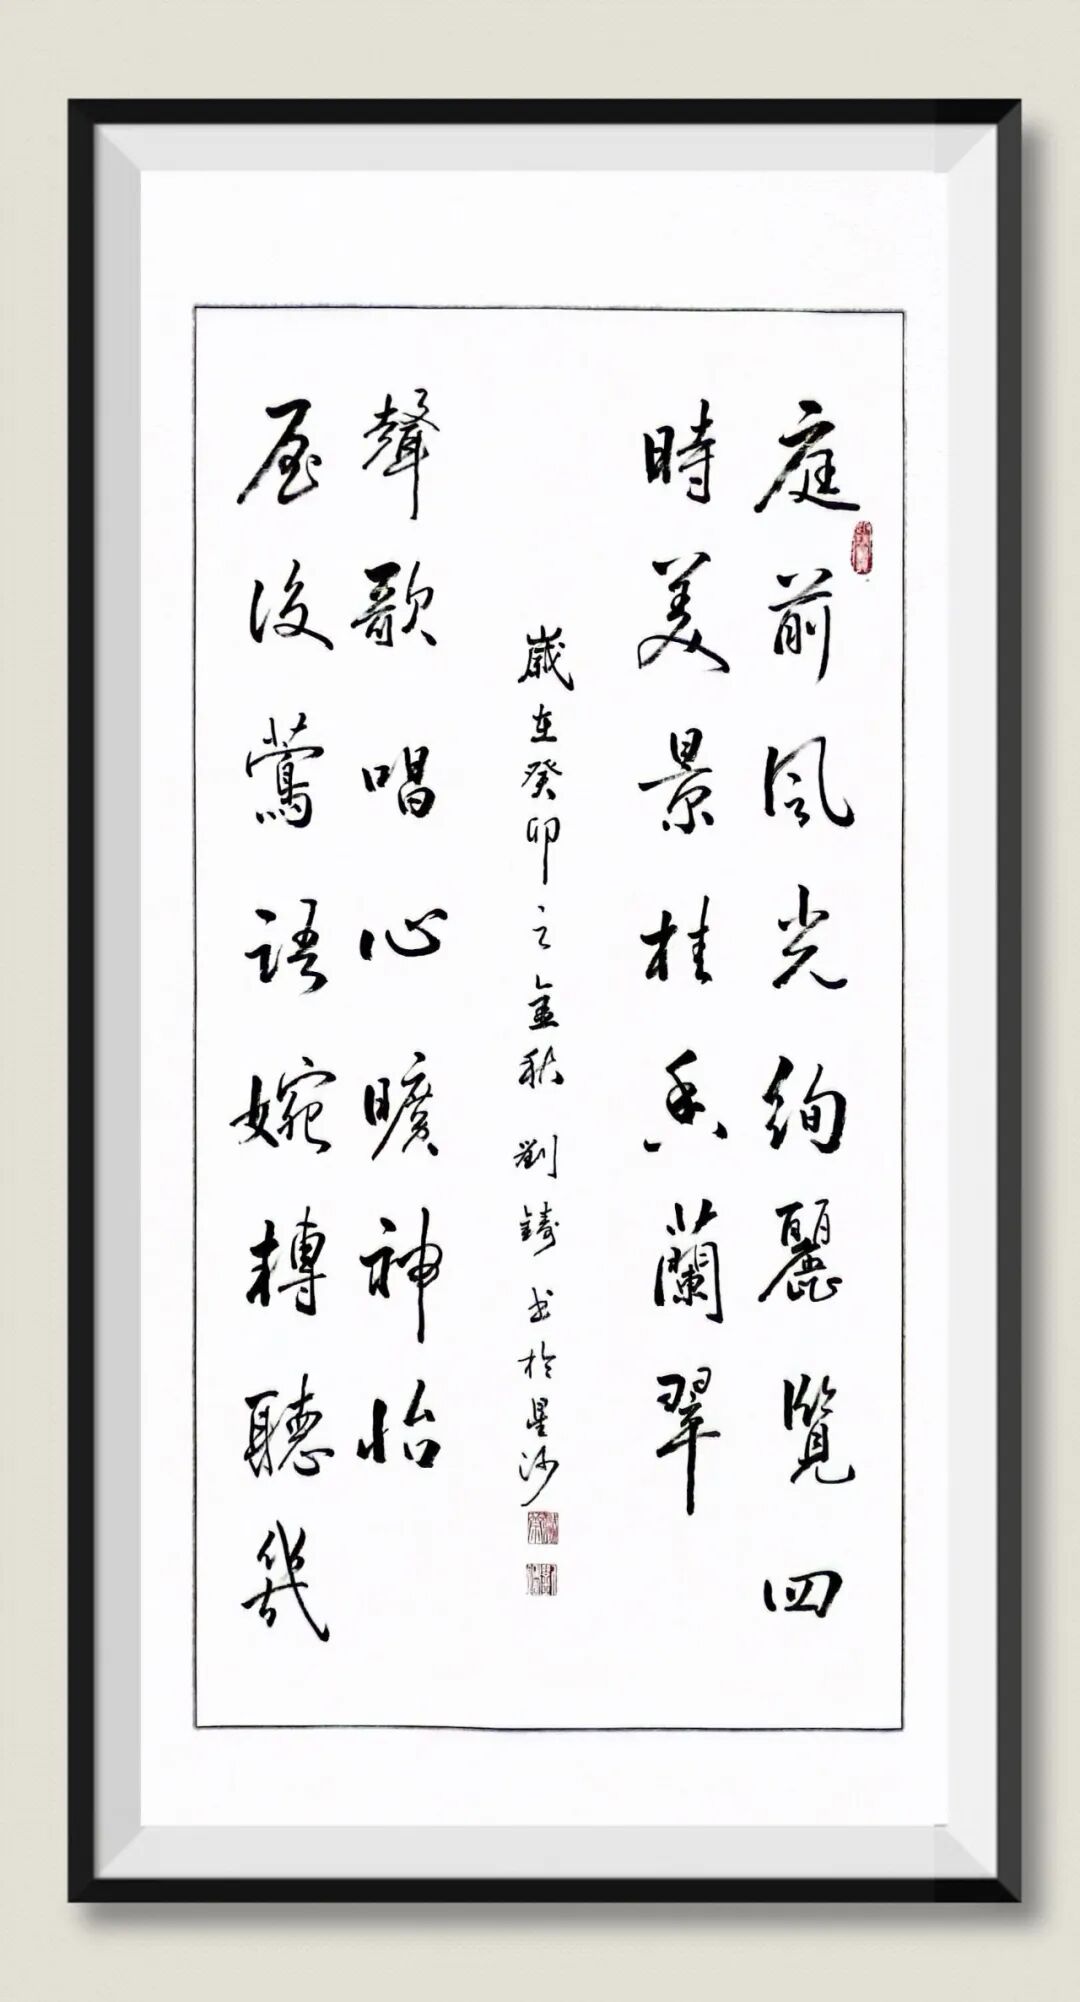 庭前風光絢麗覽四
時美景桂香蘭翠
屋後鶯語婉轉聽幾
聲歌唱心曠神怡
歲在癸卯之金秋 劉鑄书於星沙